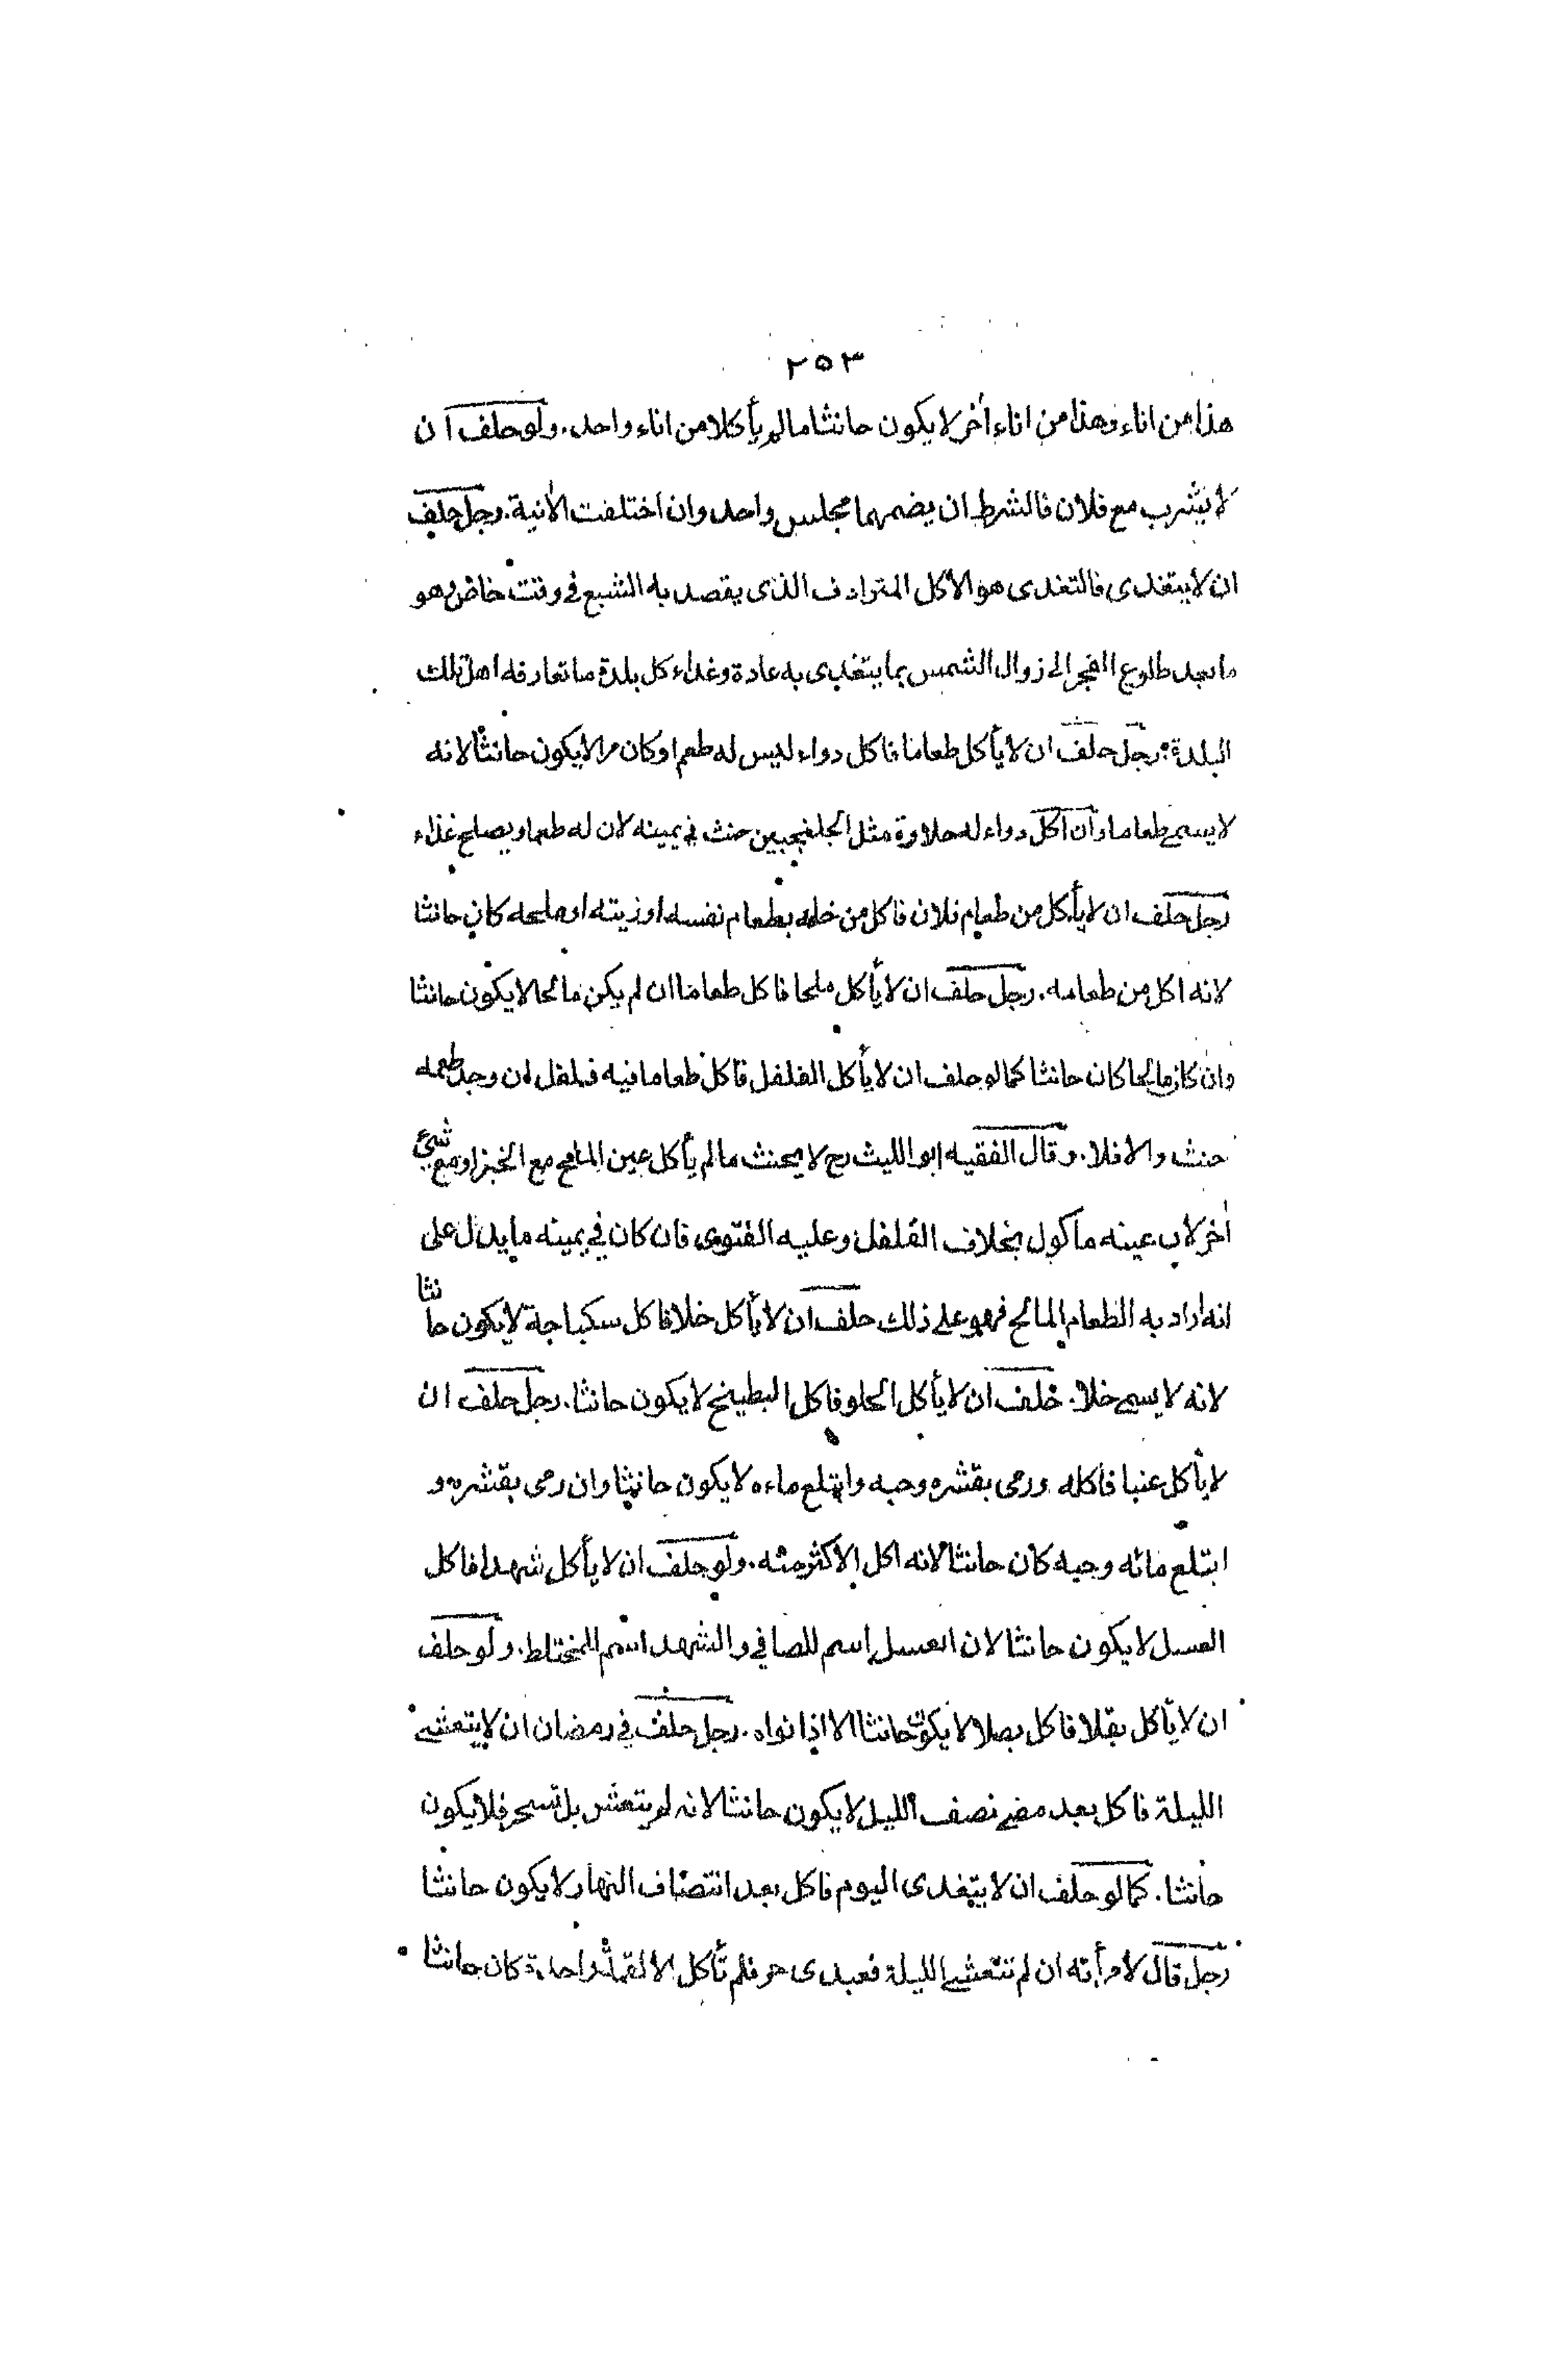 ٢٥٣
هذا من اناء وهذا من اناء أخر لا يكون حانثا ما لم يأكلا من اناء واحد. ولو حلف ان
لا يشرب مع فلان فالشرط ان يضمهما مجلس واحد وان اختلفت الانية. رجل حلف
ان لا يتغدى فالتغدى هو الاكل المترادف الذى يقصد به الشبع فى وقت خاص وهو
ما بعد طلوع الفجر الى زوال الشمس بما يتغدى به عادة وغداء كل بلدة ما تعارفه اهل تلك
البلدة. رجل حلف ان لا يأكل طعاما فاكل دواء ليس له طعم او كان مرا لا يكون حانثا لانه
لا يسمى طعاما وان اكل دواء له حلاوة مثل الجلنجبين حنث في يمينه لان له طعما ويصلح غذاء
رجل حلف ان لا يأكل من طعام فلان فاكل من خله بطعام نفسه او زيته او ملحه كان حانثا
لانه اكل من طعامه. رجل حلف ان لا يأكل ملحا فاكل طعاما ان لم يكن مالحا لا يكون حانثا
وان كان مالحا كان حانثا كما لو حلف ان لا يأكل الفلفل فاكل طعاما فيه فلفل ان وجد طعمه
حنث والا فلا. وقال الفقيه ابو الليث رح لا يحنث ما لم يأكل عين الملح مع الخبز او مع شئ
أخر لان عينه ماكول بخلاف الفلفل وعليه الفتوى فان كان في يمينه ما يدل على
انه اراد به الطعام المالح فهو على ذلك حلف ان لا يأكل خلا فاكل سكباجة لا يكون حانثا
لانه لا يسمى خلا. حلف ان لا يأكل الحلو فاكل البطيخ لا يكون حانثا. رجل حلف ان
لا يأكل عنبا فاكله ورمى بقشره وحبه وابتلع ماءه لا يكون حانثا وان رمى بقشره و
ابتلع مائه وحبه كان حانثا لانه اكل الاكثر منه. ولو حلف ان لا يأكل شهدا فاكل
العسل لا يكون حانثا لان العسل اسم للصافي والشهد اسم للمختلط. ولو حلف
ان لا يأكل بقلا فاكل بصلا لا يكون حانثا الا اذا نواه. رجل حلف في رمضان ان لا يتعشى
الليلة فاكل بعد مضى نصف الليل لا يكون حانثا لانه لم يتعش بل تسحر فلا يكون
حانثا. كما لو حلف ان لا يتغدى اليوم فاكل بعد انتصاف النهار لا يكون حانثا
رجل قال لامرأته ان لم تتعشى الليلة فعبدى حر فلم تأكل الا لقمة واحدة كان حانثا